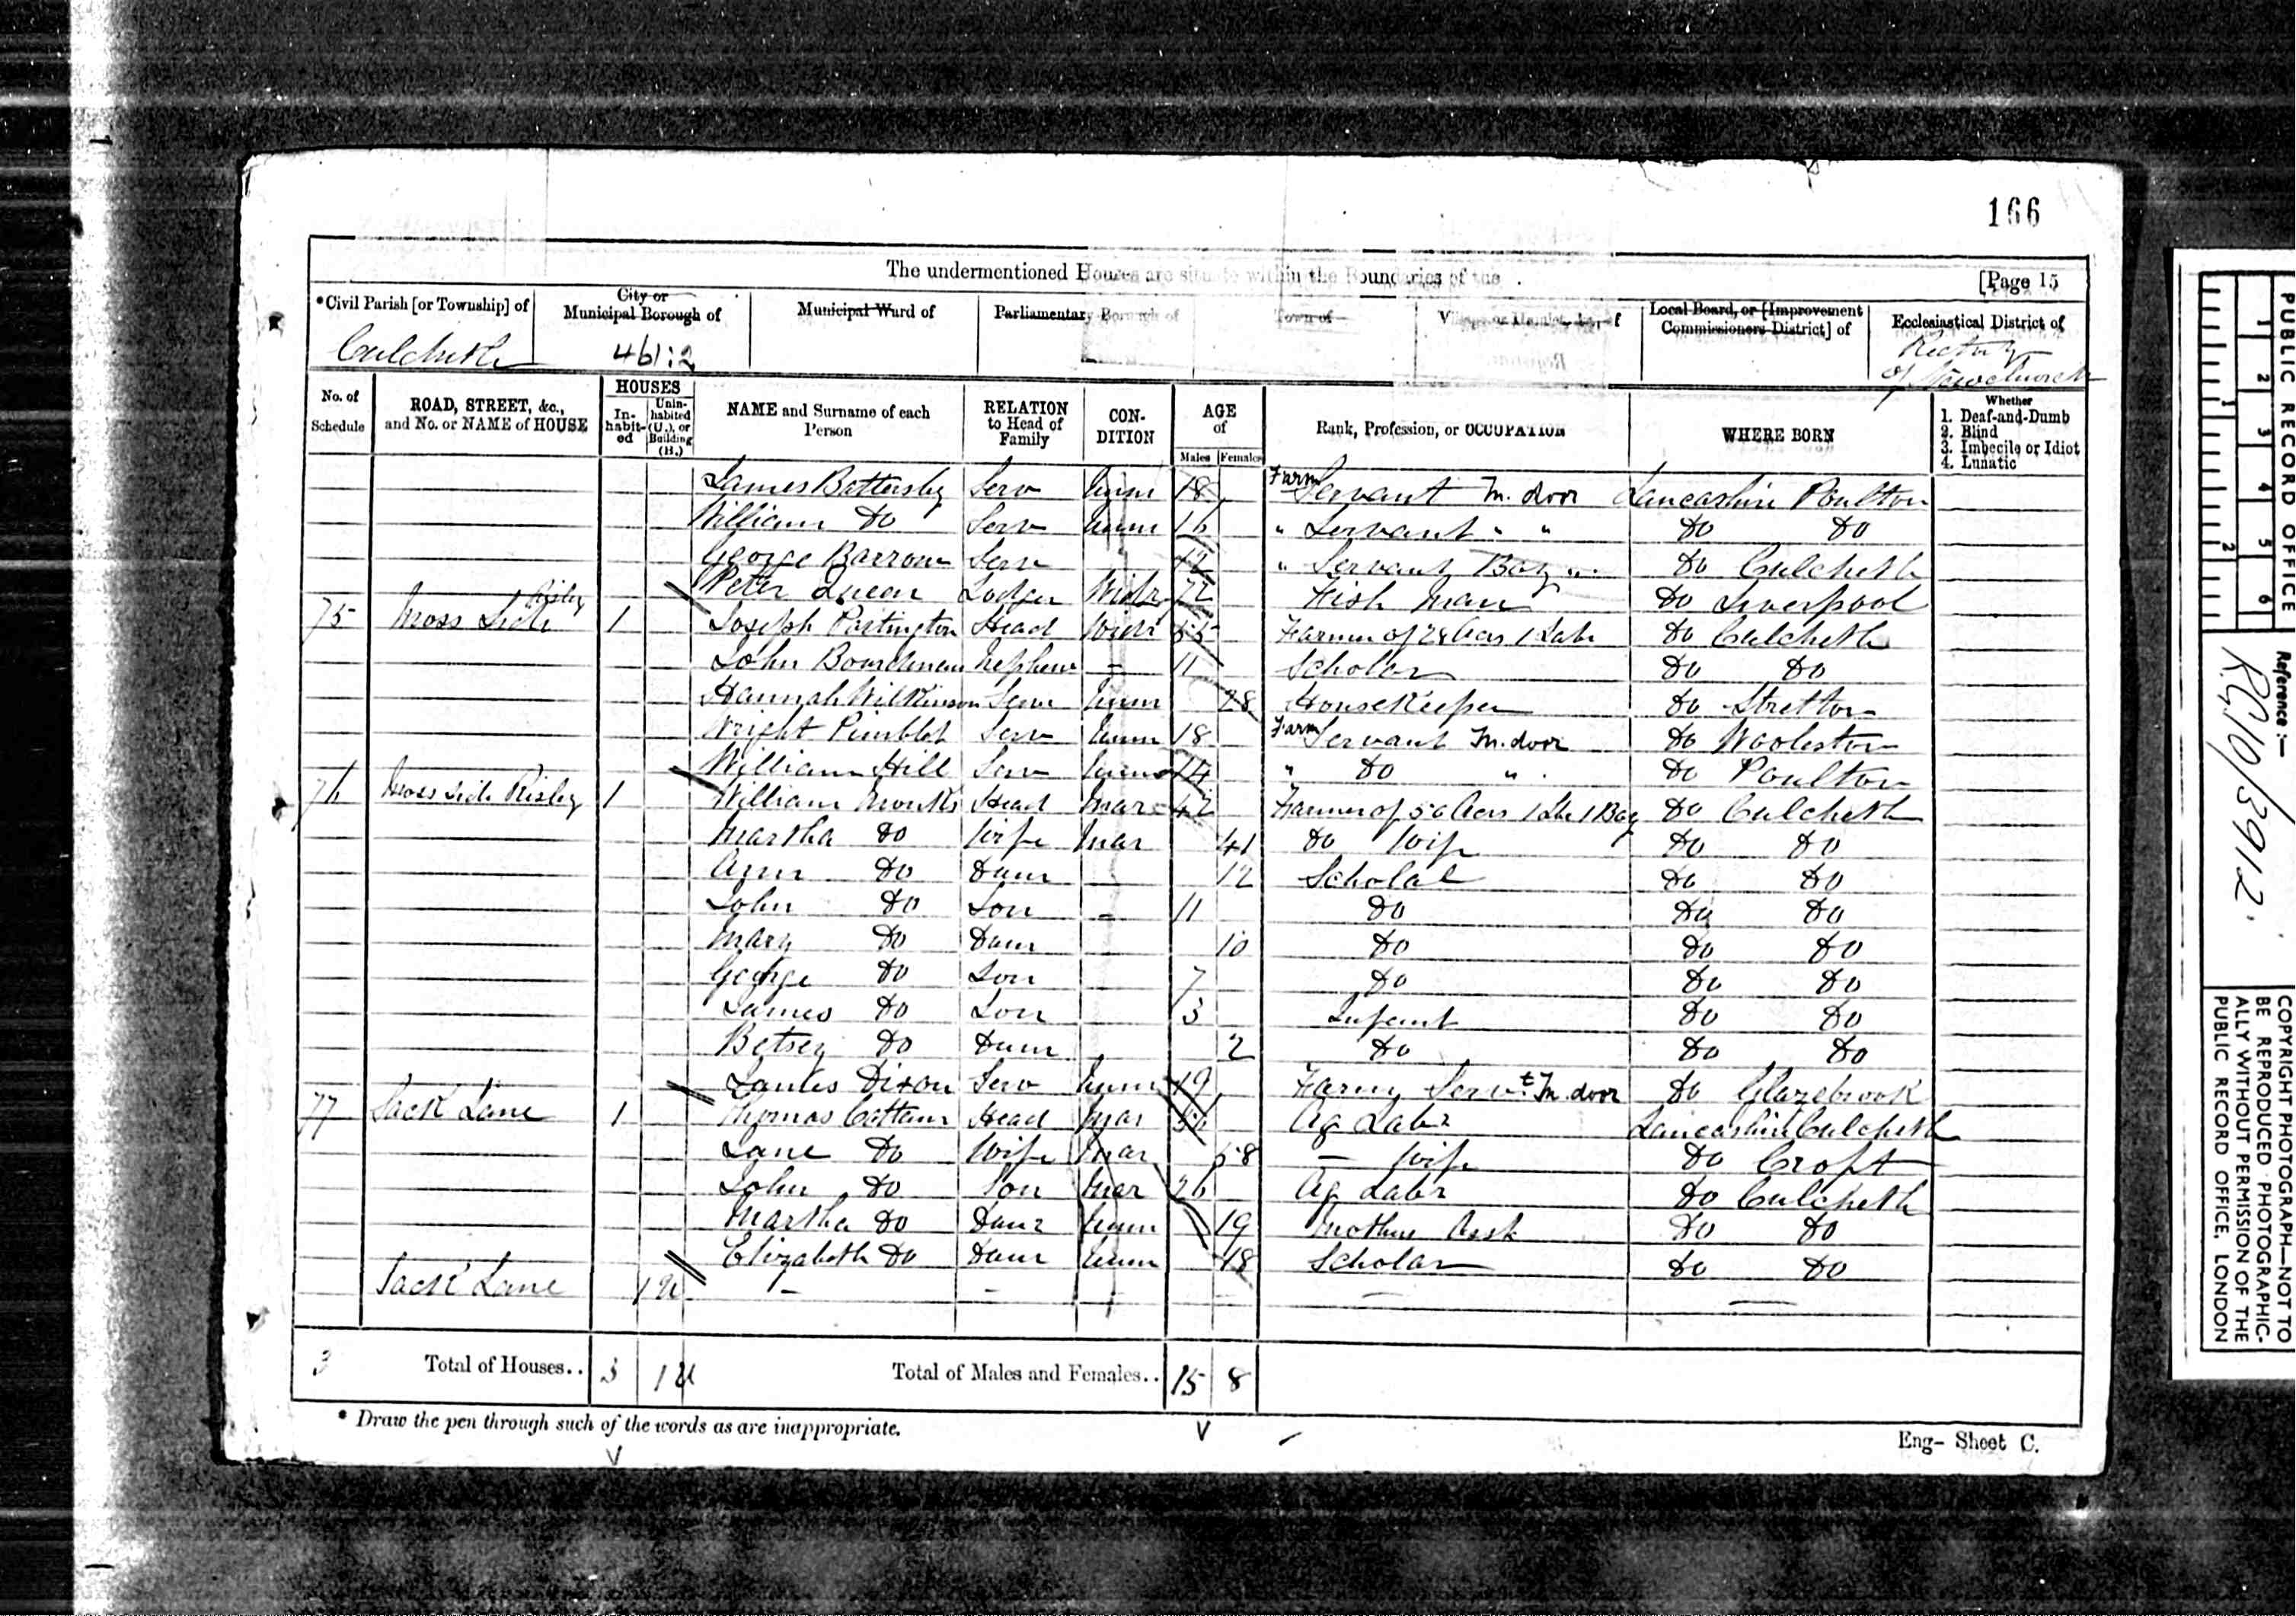 166
The undermentioned Houses are situate within the Boundaries of the
[Page 15
*Civil Parish [or Township] of
City or Municipal Borough of
Municipal Ward of
Parliamentary Borough of
Town of
Village or Hamlet, &c., of
Local Board, or [Improvement Commissioners District] of
Ecclesiastical District of
Culcheth
461:2
Rectory of Newchurch
No. of Schedule
ROAD, STREET, &c., and No. or NAME of HOUSE
HOUSES
In-habit-ed
Unin-habited (U.), or Building (B.)
NAME and Surname of each Person
RELATION to Head of Family
CON-DITION
AGE of
Males
Females
Rank, Profession, or OCCUPATION
WHERE BORN
Whether
1. Deaf-and-Dumb
2. Blind
3. Imbecile or Idiot
4. Lunatic
James Battersby Serv Unm 18 Farm Servant In. door Lancashire Poulton
William Do Serv Unm 16 " Servant " " Do Do
George Barrow Serv " Servant Boy " Do Culcheth
Peter Lodger Widr 72 Fish Man Do Liverpool
75 Moss Side Risley 1 Joseph Partington Head Widr 55 Farmer of Acrs 1 Labr Do Culcheth
John Boardman Nephew - 11 Scholar Do Do
Hannah Wilkinson Serv Unm 28 HouseKeeper Do Stretton
Wright Pimblot Serv Unm 18 Farm Servant In. door Do Woolston
William Hill Serv Unm 14 " Do " Do Poulton
76 Moss Side Risley 1 William Monks Head Mar 42 Farmer of 50 Acrs 1 Lbr 1 Boy Do Culcheth
Martha Do Wife Mar 41 Do Wife Do Do
Ann Do Daur 12 Scholar Do Do
John Do Son - 11 Do Do Do
Mary Do Daur 10 Do Do Do
George Do Son 7 Do Do Do
James Do Son 3 Infant Do Do
Betsey Do Daur 2 Do Do Do
James Dixon Serv Unm 19 Farm Servt In. door Do Glazebrook
77 Jack Lane 1 Thomas Cottam Head Mar Ag Labr Lancashire Culcheth
Jane Do Wife Mar 58 - Wife Do Croft
John Do Son Mar 26 Ag Labr Do Culcheth
Martha Do Daur Unm 19 Mothers Asst Do Do
Elizabeth Do Daur Unm 18 Scholar Do Do
Jack Lane 1 U - - - - -
3 Total of Houses.. 3 1 U Total of Males and Females.. 15 8
* Draw the pen through such of the words as are inappropriate.
Eng- Sheet C.
PUBLIC RECORD OFFICE
1 2 3 4 5 6
1 2
Reference:-
R.G. 10/3912
COPYRIGHT PHOTOGRAPH—NOT TO
BE REPRODUCED PHOTOGRAPHIC-
ALLY WITHOUT PERMISSION OF THE
PUBLIC RECORD OFFICE, LONDON